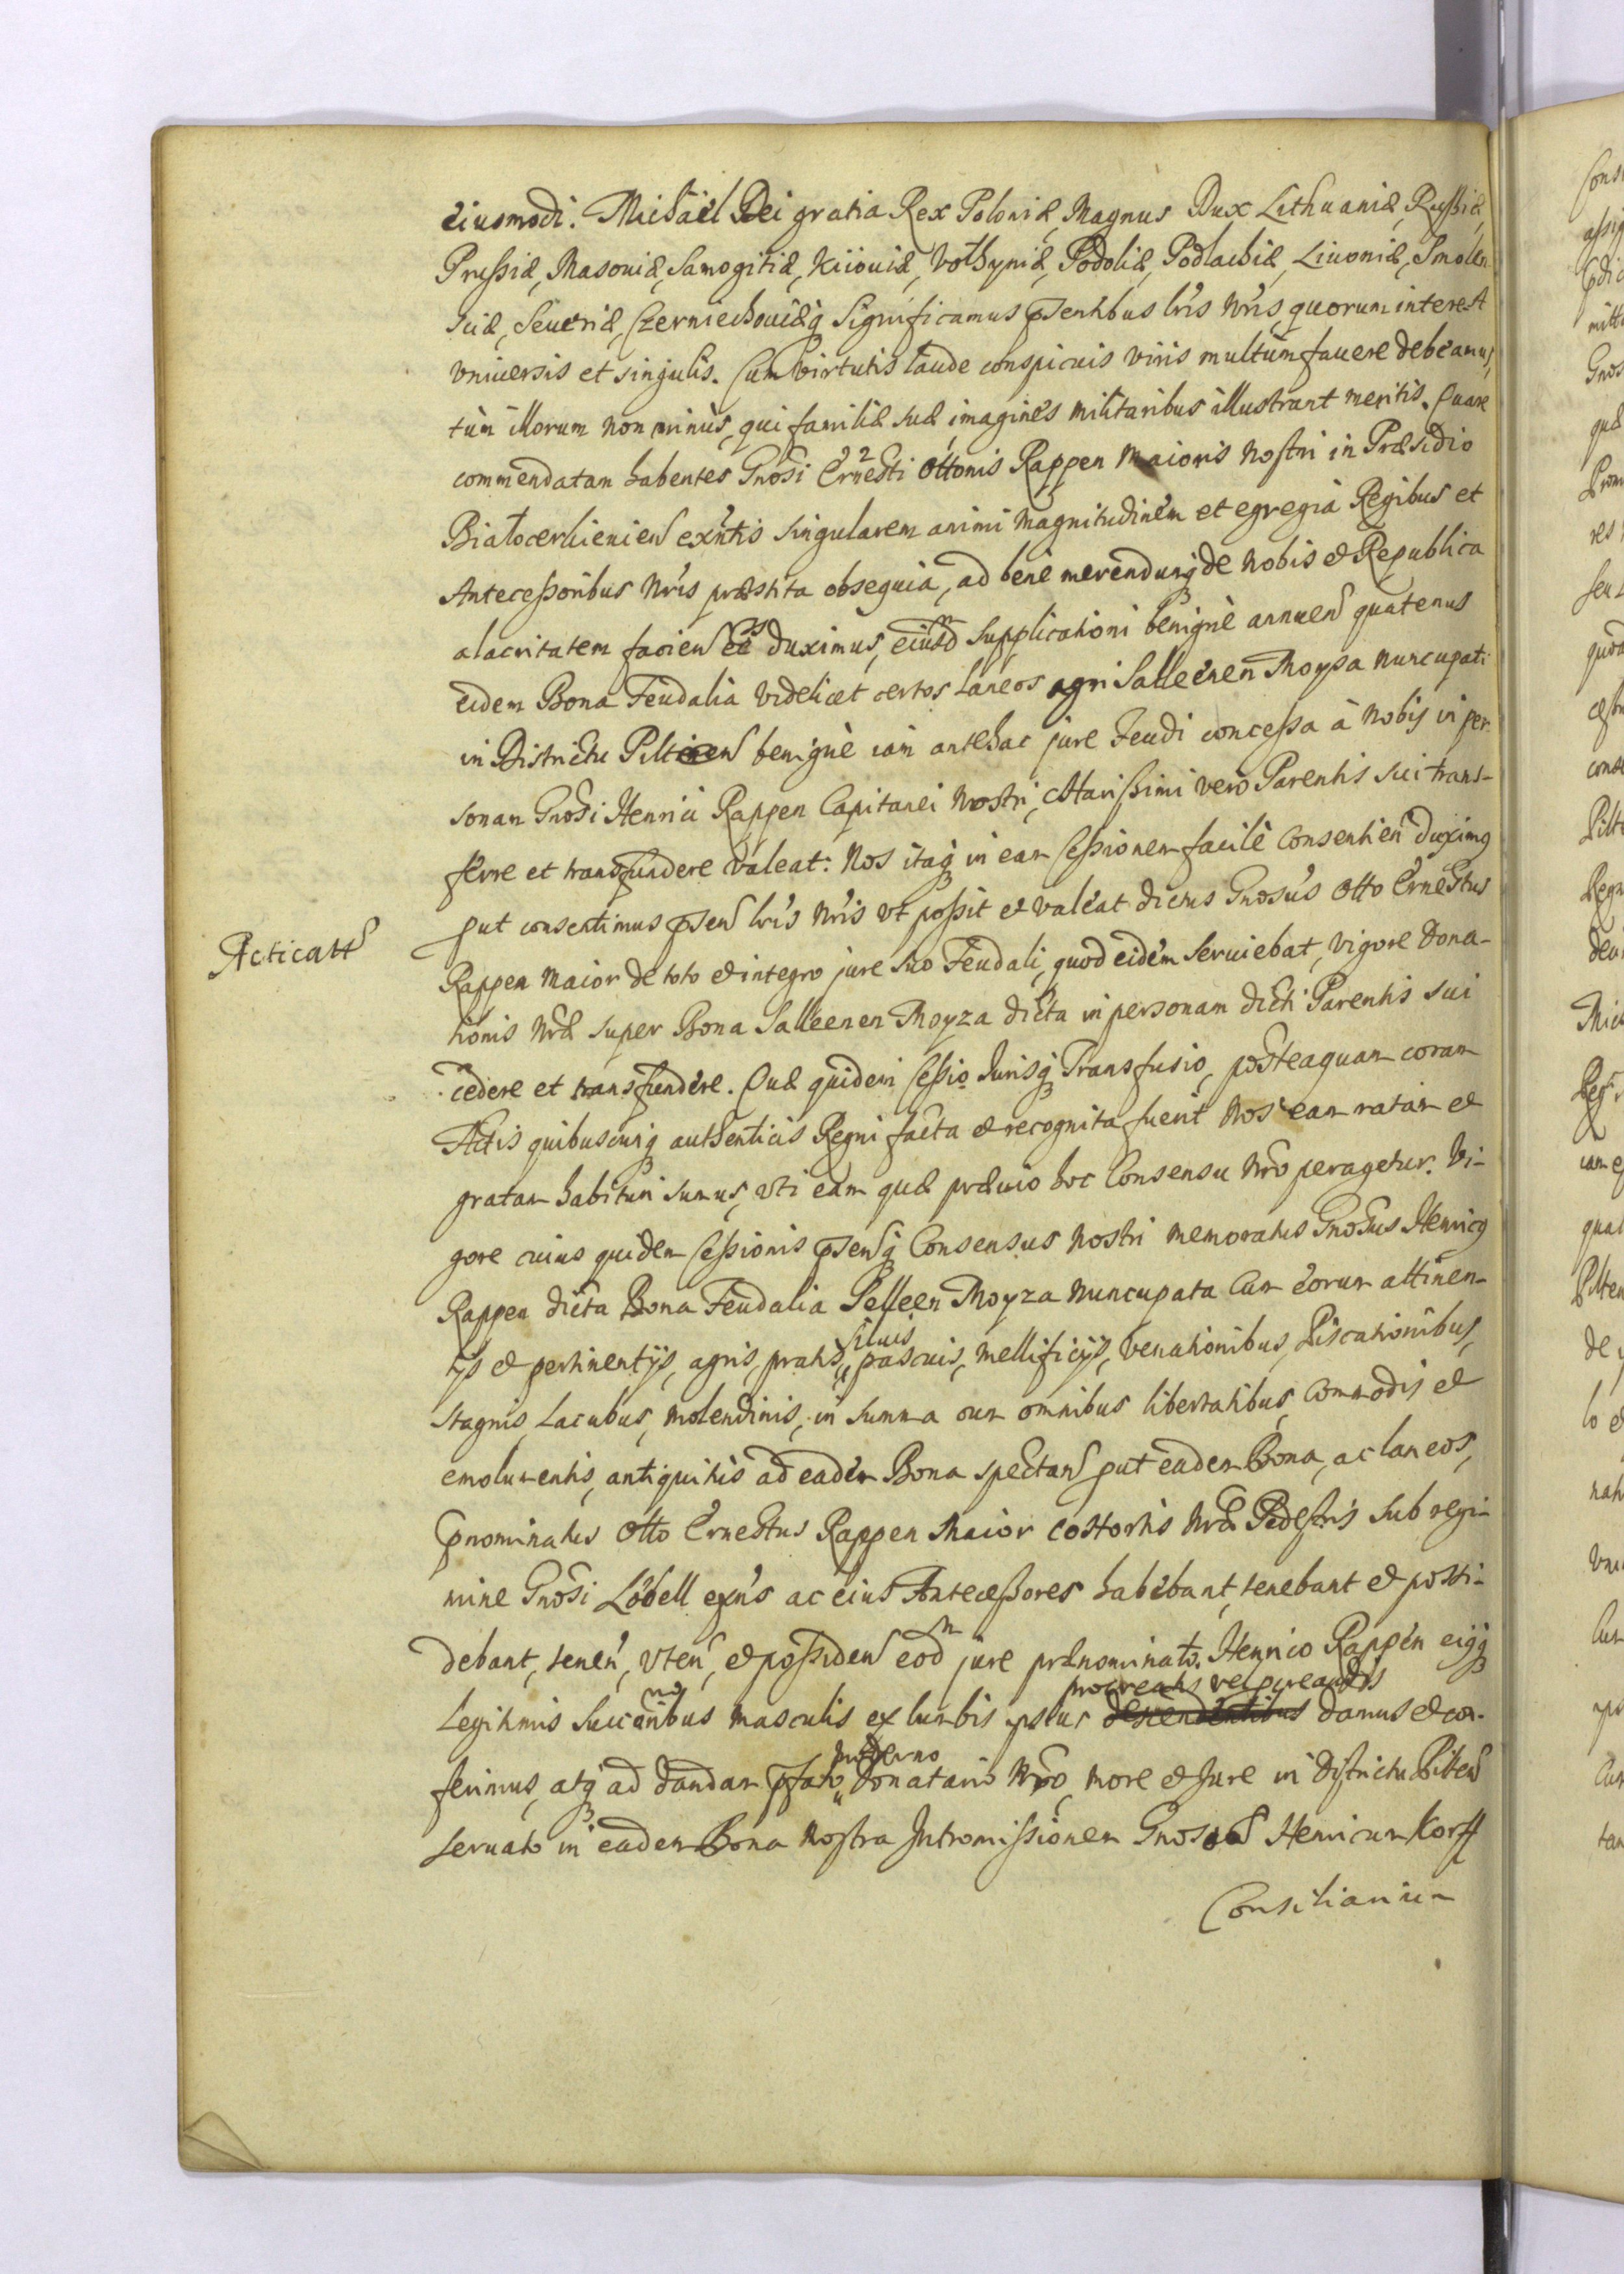 eiusmodi. Michaël Dei gratia Rex Poloniæ, Magnus Dux Lithuaniæ, Russiæ,
Prussiæ, Masouiæ, Samogitiæ, Kiiouiæ, Vołhyniæ, Podoliæ, Podlachiæ, Liuoniæ, Smolen
sciæ, Seueriæ, Czerniechouiæq Significamus psentibus lris nris quorum interest
vniuersis et singulis. Cum virtutis laude conspicuis viris multùm fauere debeamus,
tùm illorum non minùs, qui familiæ suæ imagines militaribus illustrant meritis. Quare
commendatam habentes Gnosi Ernesti Ottonis Rappen Maioris Nostri in Præsidio
Białocerkieuien exntis singularem animi magnitudinem et egregia Regibus et
Antecessoribus Nris præstita obsequia, ad bene merendumq de Nobis et Republica
alacritatem facien duximus, eiusd supplicationi benignè annuen quatenus
eidem Bona Feudalia videlicet certos laneos agri Salleenen Moysa nuncupati
in Districtu Pilten benignè iam antehac jure Feudi concessa à Nobis in per
sonam Gnosi Henrici Rappen Capitanei Nostri, Charissimi verò Parentis sui trans-
ferre et transfundere valeat. Nos itaq in eam Cessionem facilè consentien duximq
put consentimus psen lris Nris vt possit et valeat dictus Gnosus Otto Ernestus
Acticatt
Rappen Maior de toto et integro jure suo Feudali, quod eidem seruiebat, vigore Dona-
tionis Nræ super Bona Salleenen Moyza dicta in personam dicti Parentis sui
cedere et transfundere. Quæ quidem Cessio Jurisq Transfusio, posteaquam coram
Actis quibuscunq authenticis Regni facta et recognita fuerit Nos eam ratam et
gratam habituri sumus, vti eam quæ præuio hoc Consensu Nro peragetur. Vi-
gore cuius quidem Cessionis psenq Consensus Nostri memoratus Gnosus Henricq
Rappen dicta Bona Feudalia Selleen Moyza nuncupata Cum eorum attinen-
siluis
tijs et pertinentijs, agris, pratis, pascuis, mellificijs, venationibus, Piscationibus,
stagnis, Lacubus, molendinis, in summa cum omnibus libertatibus, Commodis et
emolumentis, antiquitùs ad eadem Bona spectan put eadem Bona, ac laneos,
pnominatus Otto Ernestus Rappen Maior cohortis Nræ Pedestris sub regi-
mine Gnosi Löbell exns ac eius Antecessores habebant, tenebant et possi-
debant, tenen, vten, et possiden eod jure prænominato Henrico Rappen eiqq
procreatis vel pcreandis
Legitimis Succoribus masculis ex lumbis ipsius descendentibus damus et con-
moderno
ferimus, atq ad dandam pfato Donatario Nro, more et Jure in Districtu Pilten
seruato in eadem Bona Nostra Intromissionem Henricum Korff
Consiliarium